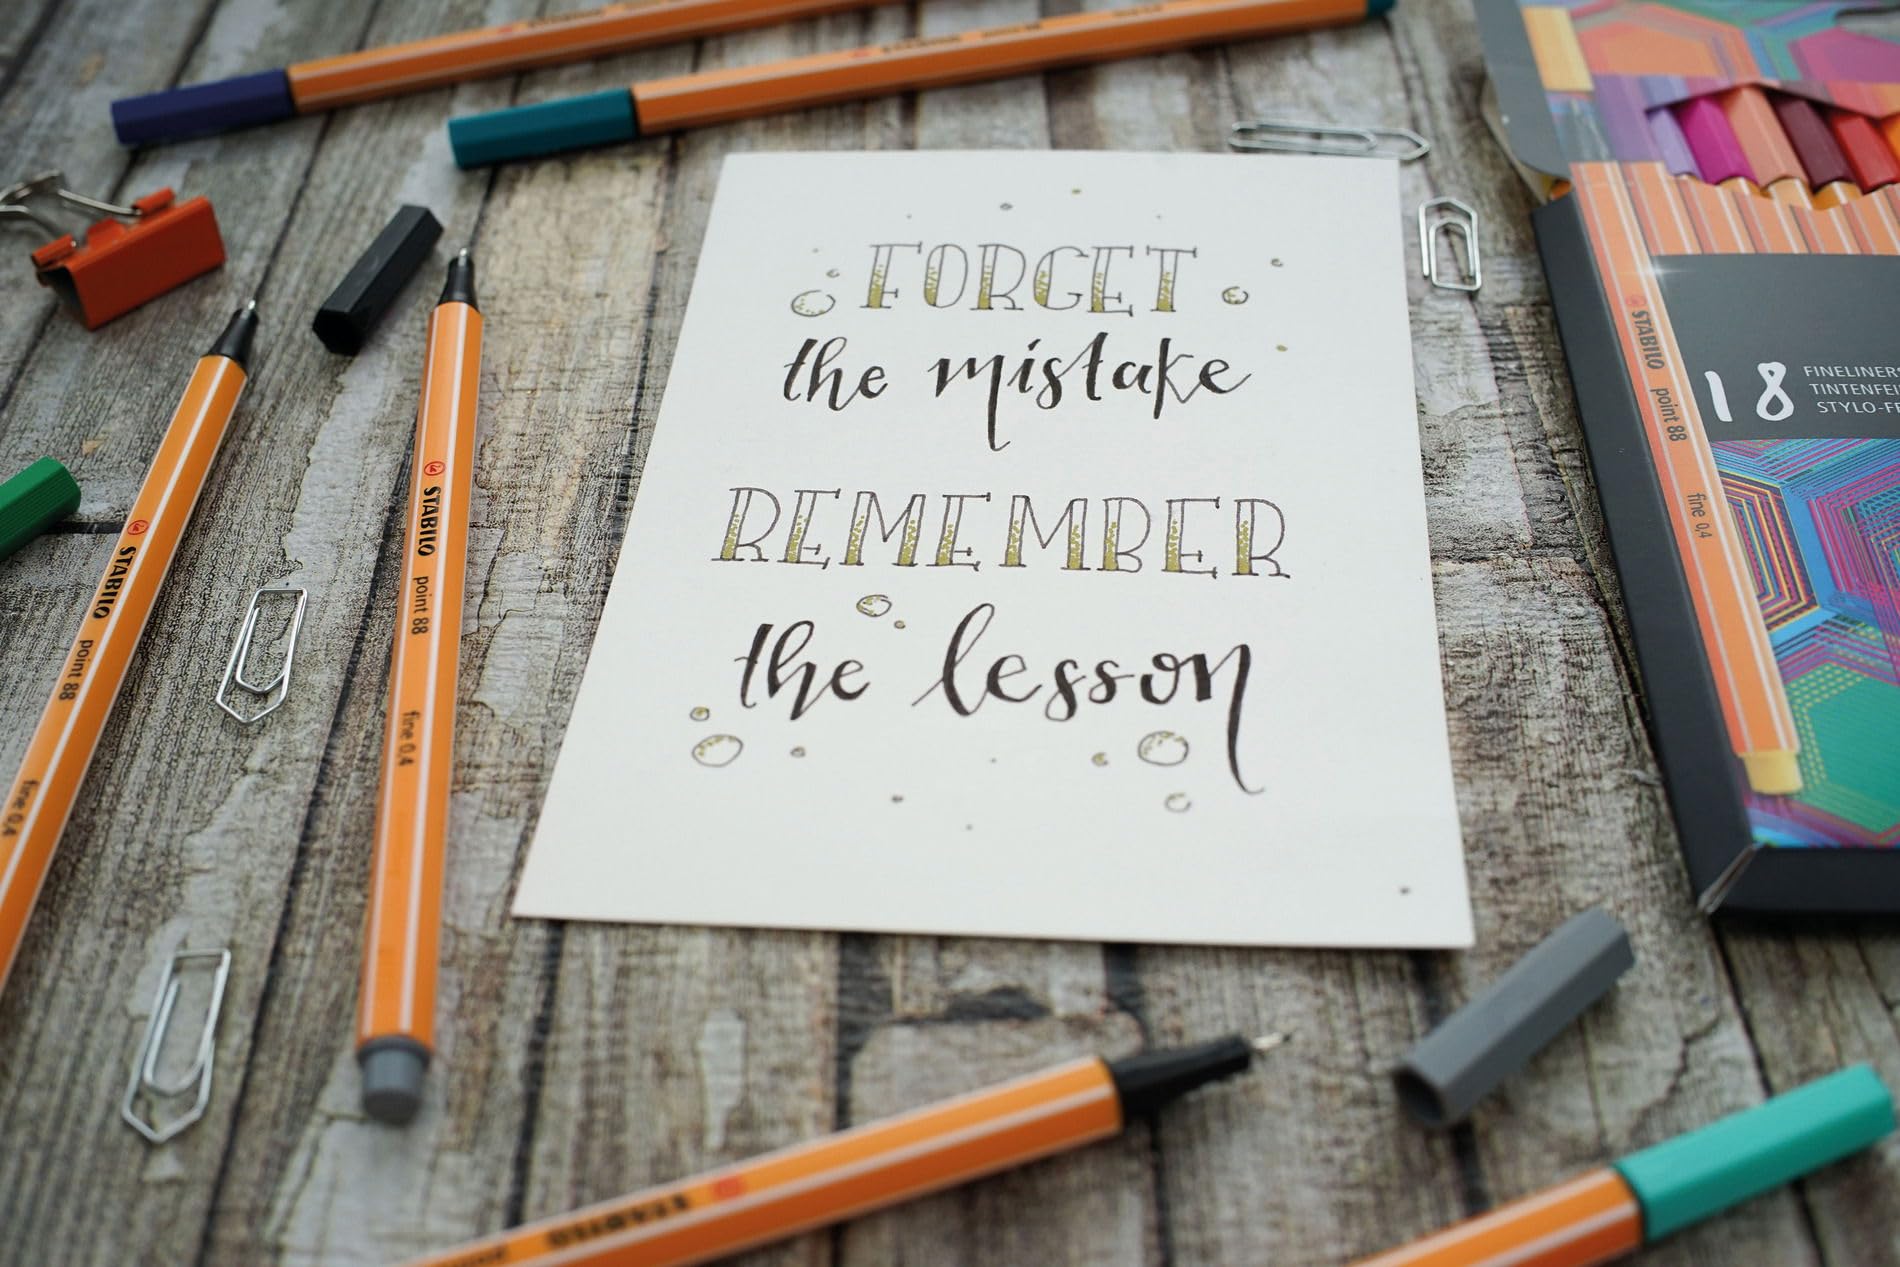 FORGET
the mistake
REMEMBER
the lesson
STABILO point 88 fine 0,4
STABILO point 88 fine 0,4
STABILO point 88 fine 0,4
18
FINELINER
STABILO